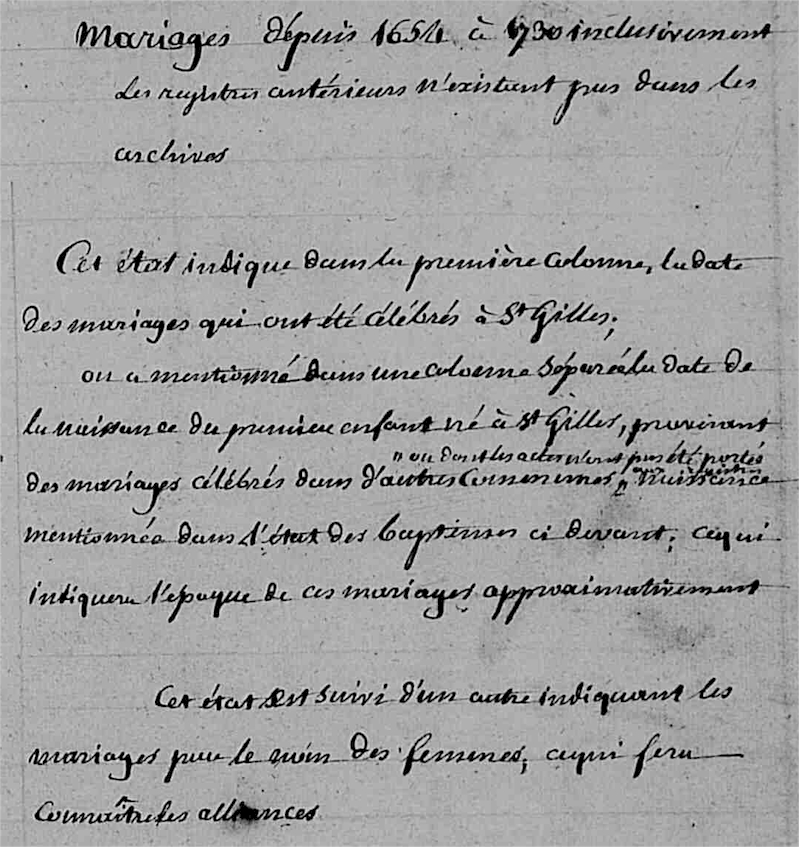 Mariages dépuis 1654 à 1730 inclusivement
Les registres antérieurs n'existant pas dans les
archives
Cet état indique dans la première colonne, la date
des mariages qui ont été célébrés à St Gilles;
on a mentionné dans une colonne séparée la date de
la naissance du premier enfant né à St Gilles, provenant
" ou dont les actes n'ont pas été portés
aux registres
des mariages célébrés dans d'autres Communes, " naissance
mentionnée dans l'état des baptêmes ci devant; ce qui
indiquera l'époque de ces mariages approximativement
Cet état est suivi d'un autre indiquant les
mariages par le nom des femmes, ce qui fera
Connaître les alliances